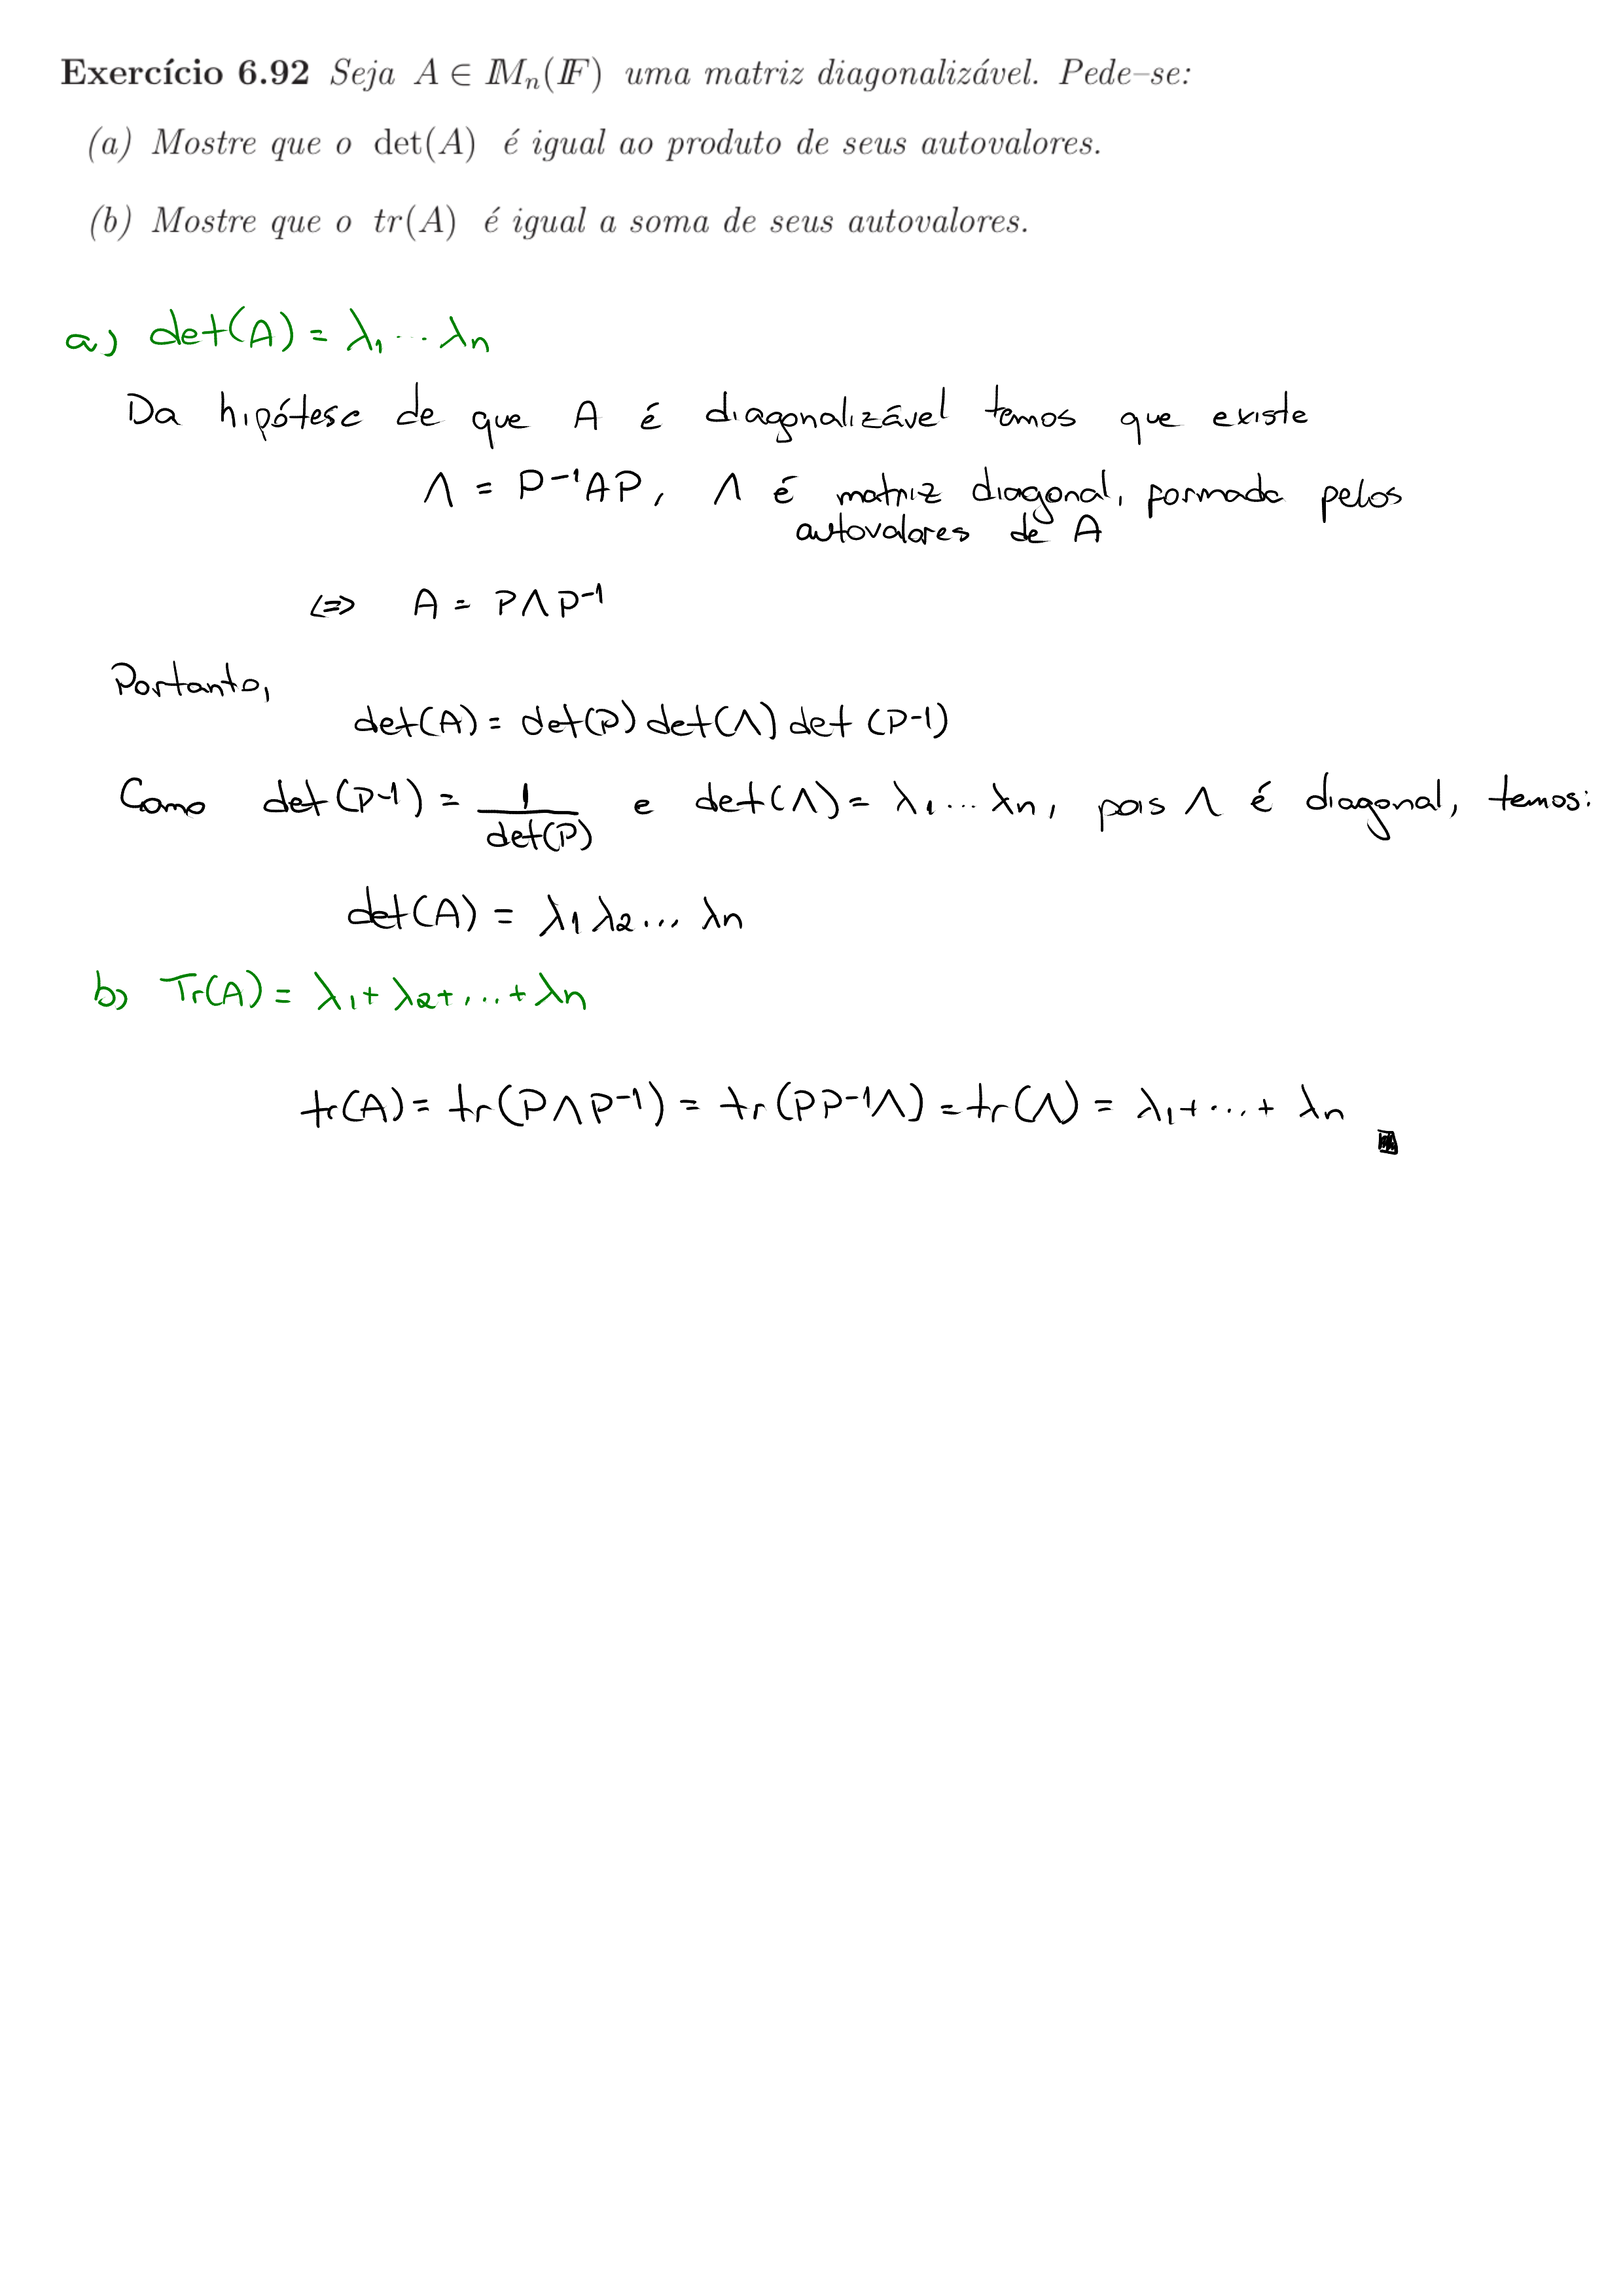 Exercício 6.92 Seja A ∈ 𝕄ₙ(𝔽) uma matriz diagonalizável. Pede–se:
(a) Mostre que o det(A) é igual ao produto de seus autovalores.
(b) Mostre que o tr(A) é igual a soma de seus autovalores.
a) det(A) = λ₁ ... λn
Da hipótese de que A é diagonalizável temos que existe
Λ = P⁻¹AP, Λ é matriz diagonal, formada pelos
autovalores de A
⇔ A = PΛP⁻¹
Portanto,
det(A) = det(P) det(Λ) det (P-1)
Como det(P-1) = 1/det(P) e det(Λ) = λ₁ ... λn, pois Λ é diagonal, temos:
det(A) = λ1 λ2 ... λn
b) Tr(A) = λ₁ + λ₂ + ... + λn
tr(A) = tr(PΛP⁻¹) = tr(PP⁻¹Λ) = tr(Λ) = λ₁ + ... + λn